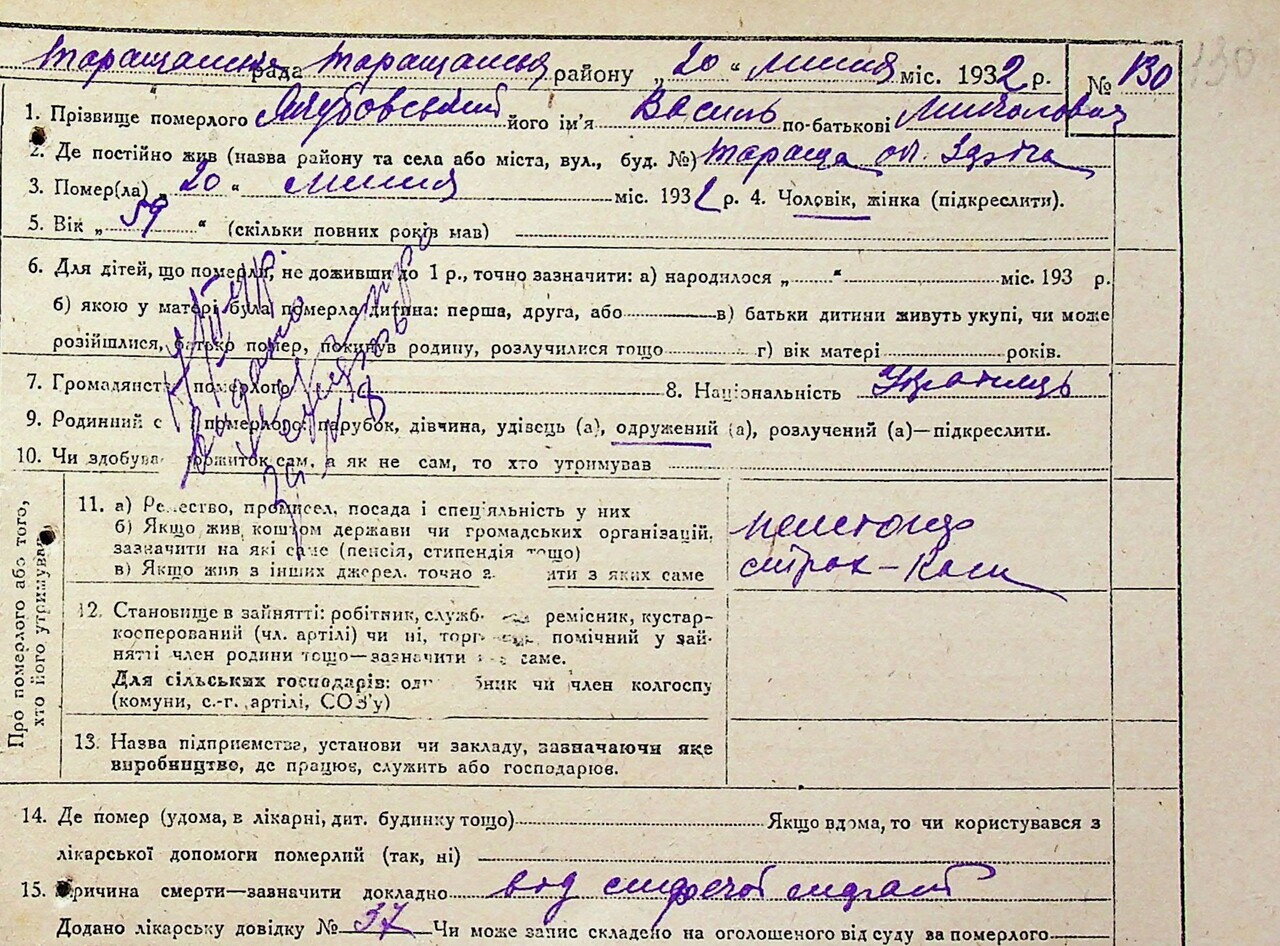 Таращанська рада Таращанська району „20“ липня міс. 1932 р. № 130 130
1. Прізвище померлого Якубовський його ім'я Василь по-батькові Миколович
2. Де постійно жив (назва району та села або міста, вул., буд. №) Тараща
3. Помер(ла) „20“ липня міс. 1932 р. 4. Чоловік, жінка (підкреслити).
5. Вік „59“ (скільки повних років мав)
6. Для дітей, що померли, не доживши до 1 р., точно зазначити: а) народилося „ “ міс. 193 р.
б) якою у матері була померла дитина: перша, друга, або в) батьки дитини живуть укупі, чи може
розійшлися, батько помер, покинув родину, розлучилися тощо г) вік матері років.
7. Громадянст померлого 8. Національність Украинець
9. Родинний с померлого: парубок, дівчина, удівець (а), одружений (а), розлучений (а)—підкреслити.
10. Чи здобува прожиток сам, а як не сам, то хто утримував
Про померлого або того,
хто його утримував
11. а) Ремество, промисел, посада і спец'яльність у них
б) Якщо жив коштом держави чи громадських організацій,
зазначити на які саме (пенсія, стипендія тощо)
в) Якщо жив з інших джерел, точно з яких саме
страх-Каси
12. Становище в зайнятті: робітник, служб ремісник, кустар-
коопероваций (чл. артілі) чи ні, торг помічний у зай-
нятті член родини тощо—зазначити саме.
Для сільських господарів: од ник чи член колгоспу
(комуни, с.-г. артілі, СОЗ'у)
13. Назва підприємства, установи чи закладу, зазначаючи яке
виробництво, де працює, служить або господарює.
14. Де помер (удома, в лікарні, дит. будинку тощо) Якщо вдома, то чи користувався з
лікарської допомоги померлий (так, ні)
15. Причина смерти—зазначити докладно від
Додано лікарську довідку № 37 Чи може запис складено на оголошеного від суду за померлого